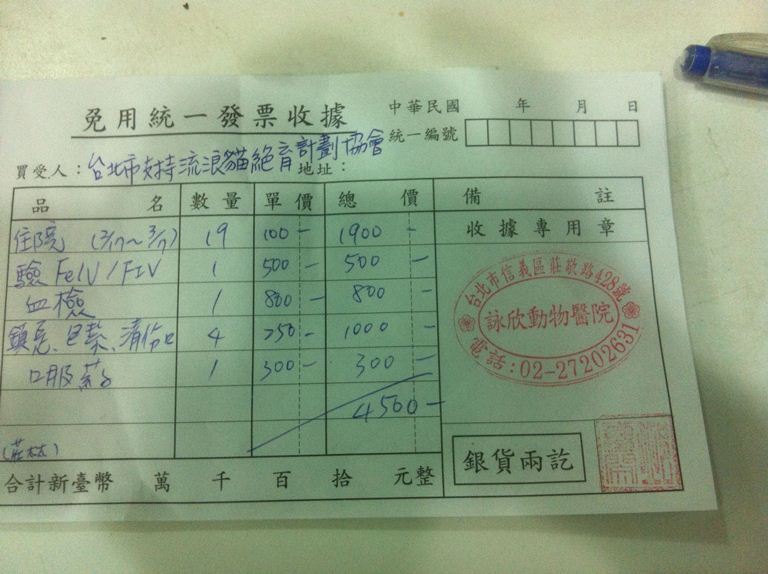 免用統一發票收據
中華民國 年 月 日
統一編號
買受人：台北市支持流浪貓絕育計劃協會 地址：
品名 數量 單價 總價 備註
收據專用章
住院 (2/17~3/7) 19 100- 1900-
驗 FeLV / FIV 1 500- 500-
血檢 1 800- 800-
鎮定、包紮、清傷口 4 250- 1000-
口服藥 1 300- 300-
4500-
台北市信義區莊敬路428號
詠欣動物醫院
電話:02-27202631
銀貨兩訖
合計新臺幣 萬 千 百 拾 元整